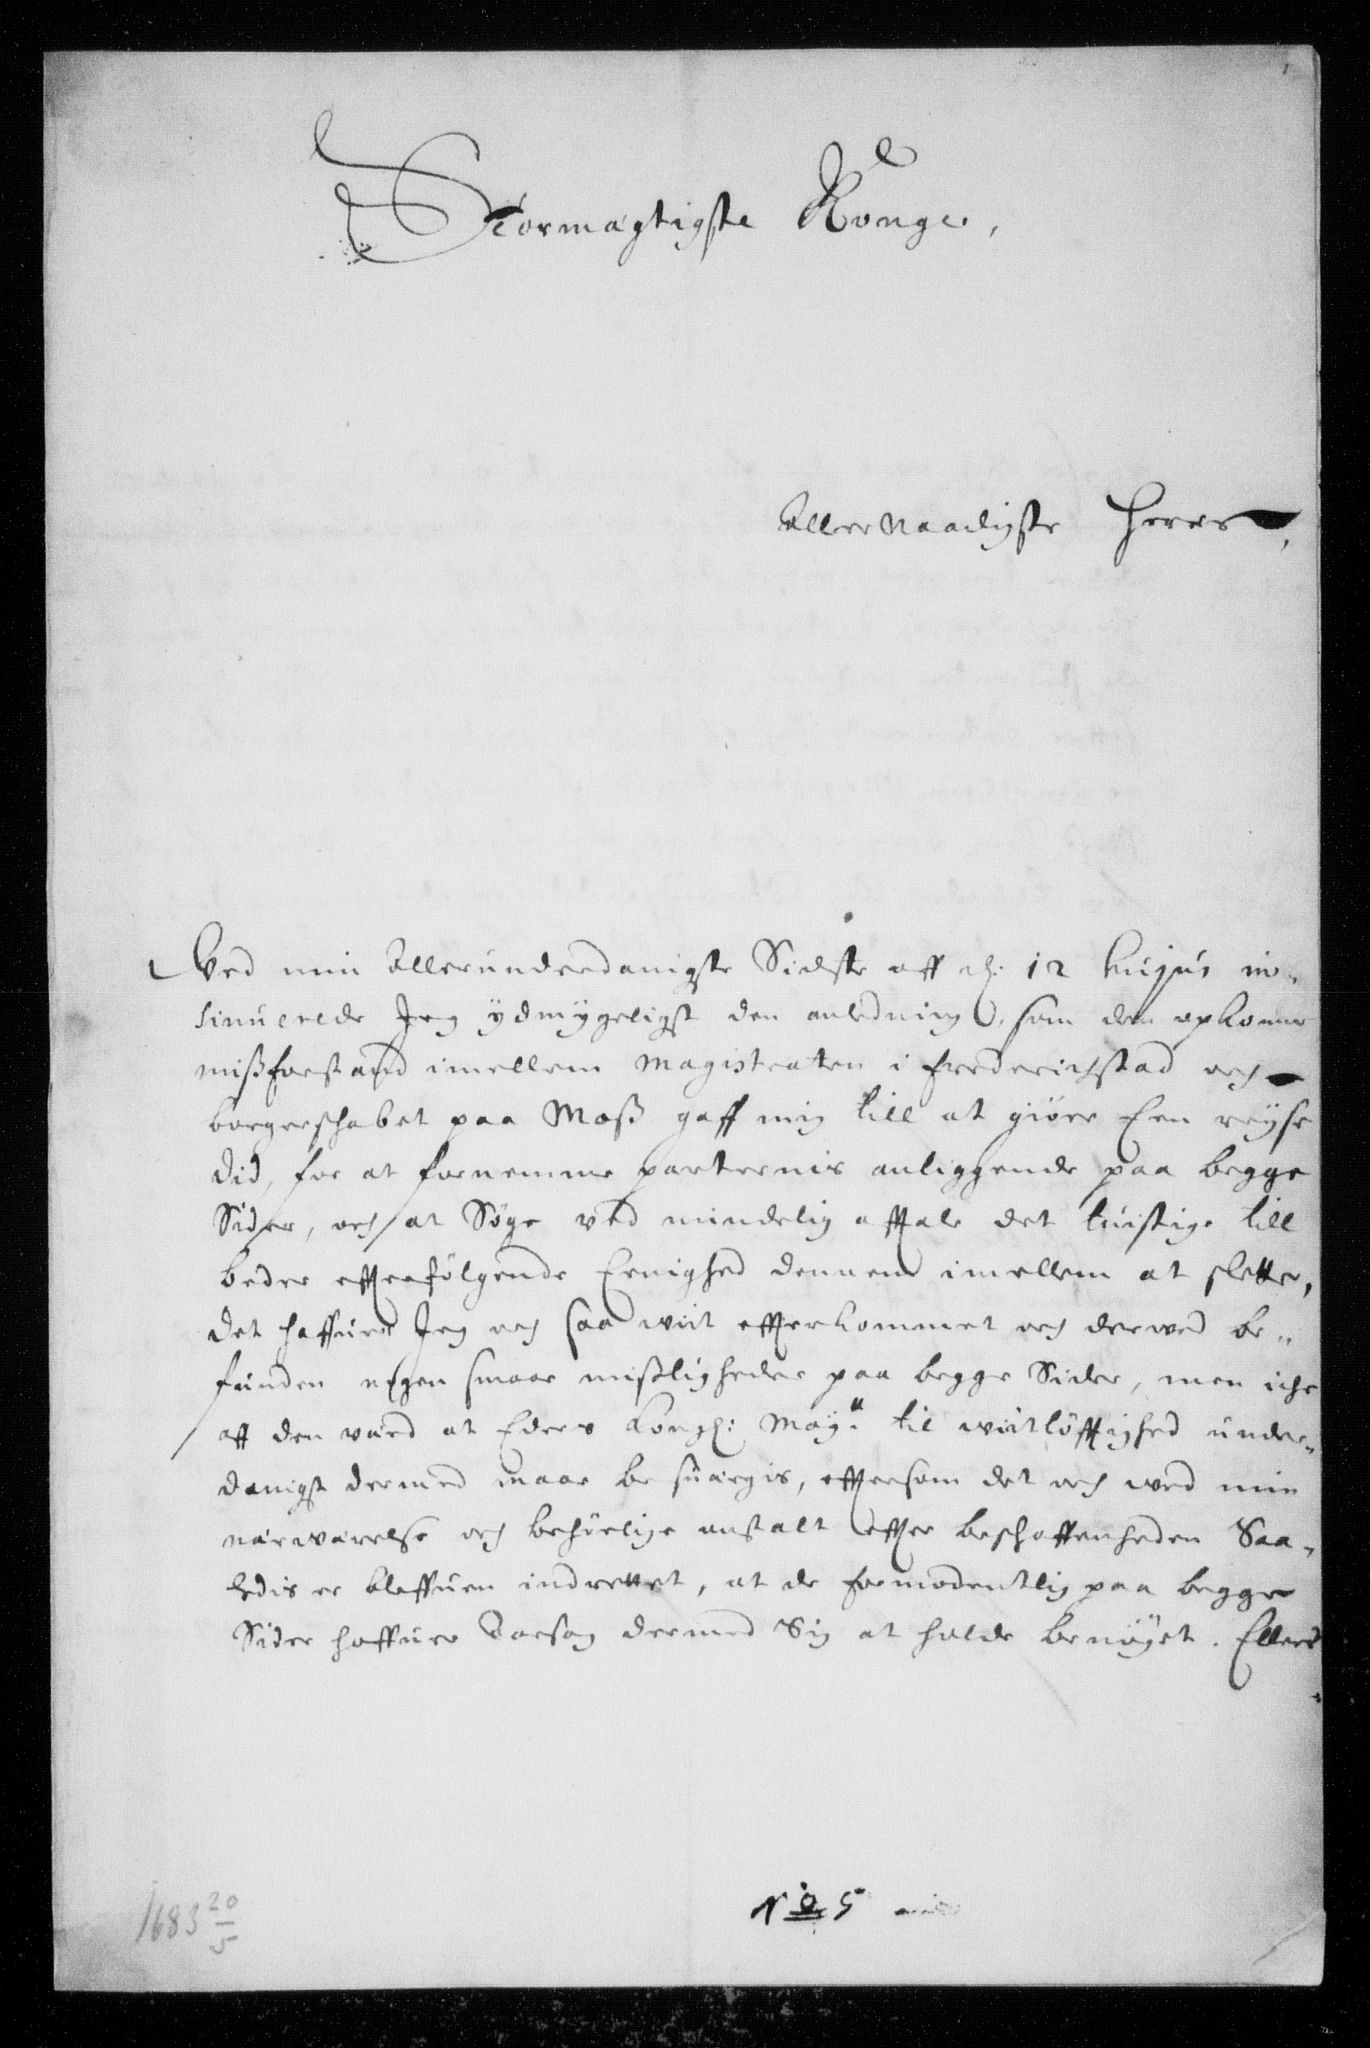 Stormagtigste Konge,
Allernaadigste Herre,
Ved min Allerunderdanigste Sidste aff d: 12 hujus in-
sinuerede Jeg ydmygeligst den anledning, som den opkomne
mißforstand imellem Magistraten i Frederichstad och
borgerschabet paa Moß gaff mig till at giøre Een reyse
did, for at fornemme parternis anliggende paa begge
Sider, och at Søge ved mindelig afftale det tuistige till
bedre effterfølgende Eenighed dennem imellem at slette,
det haffuer Jeg och saa wiit effterkommet och derved be-
funden nogen smaae mißligheder paa begge Sider, men iche
aff den værd at Eders Kongl: May.tt til wiitløfftighed under-
danigst dermed maae besuærgis, efftersom det och ved min
nærwærelse och behørlige anstalt effter beschaffenheden Saa-
ledis er bleffuen indrettet, at de formodentlig paa begge
Sider haffuer Aarsag dermed Sig at holde benøyet. Ellers
1683 20/5
No 5